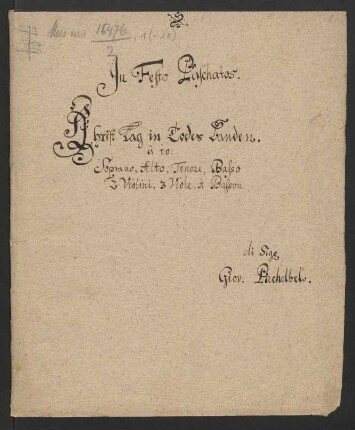 Mus. ms. 16476, 1(-10)
2
In Festo Paschatos.
Christ Lag in Todes Banden.
à 10.
Soprano, Alto, Tenore, Basso
2 Violini, 3 Viole. è Basson
di Sigre
Giov. Pachelbel.